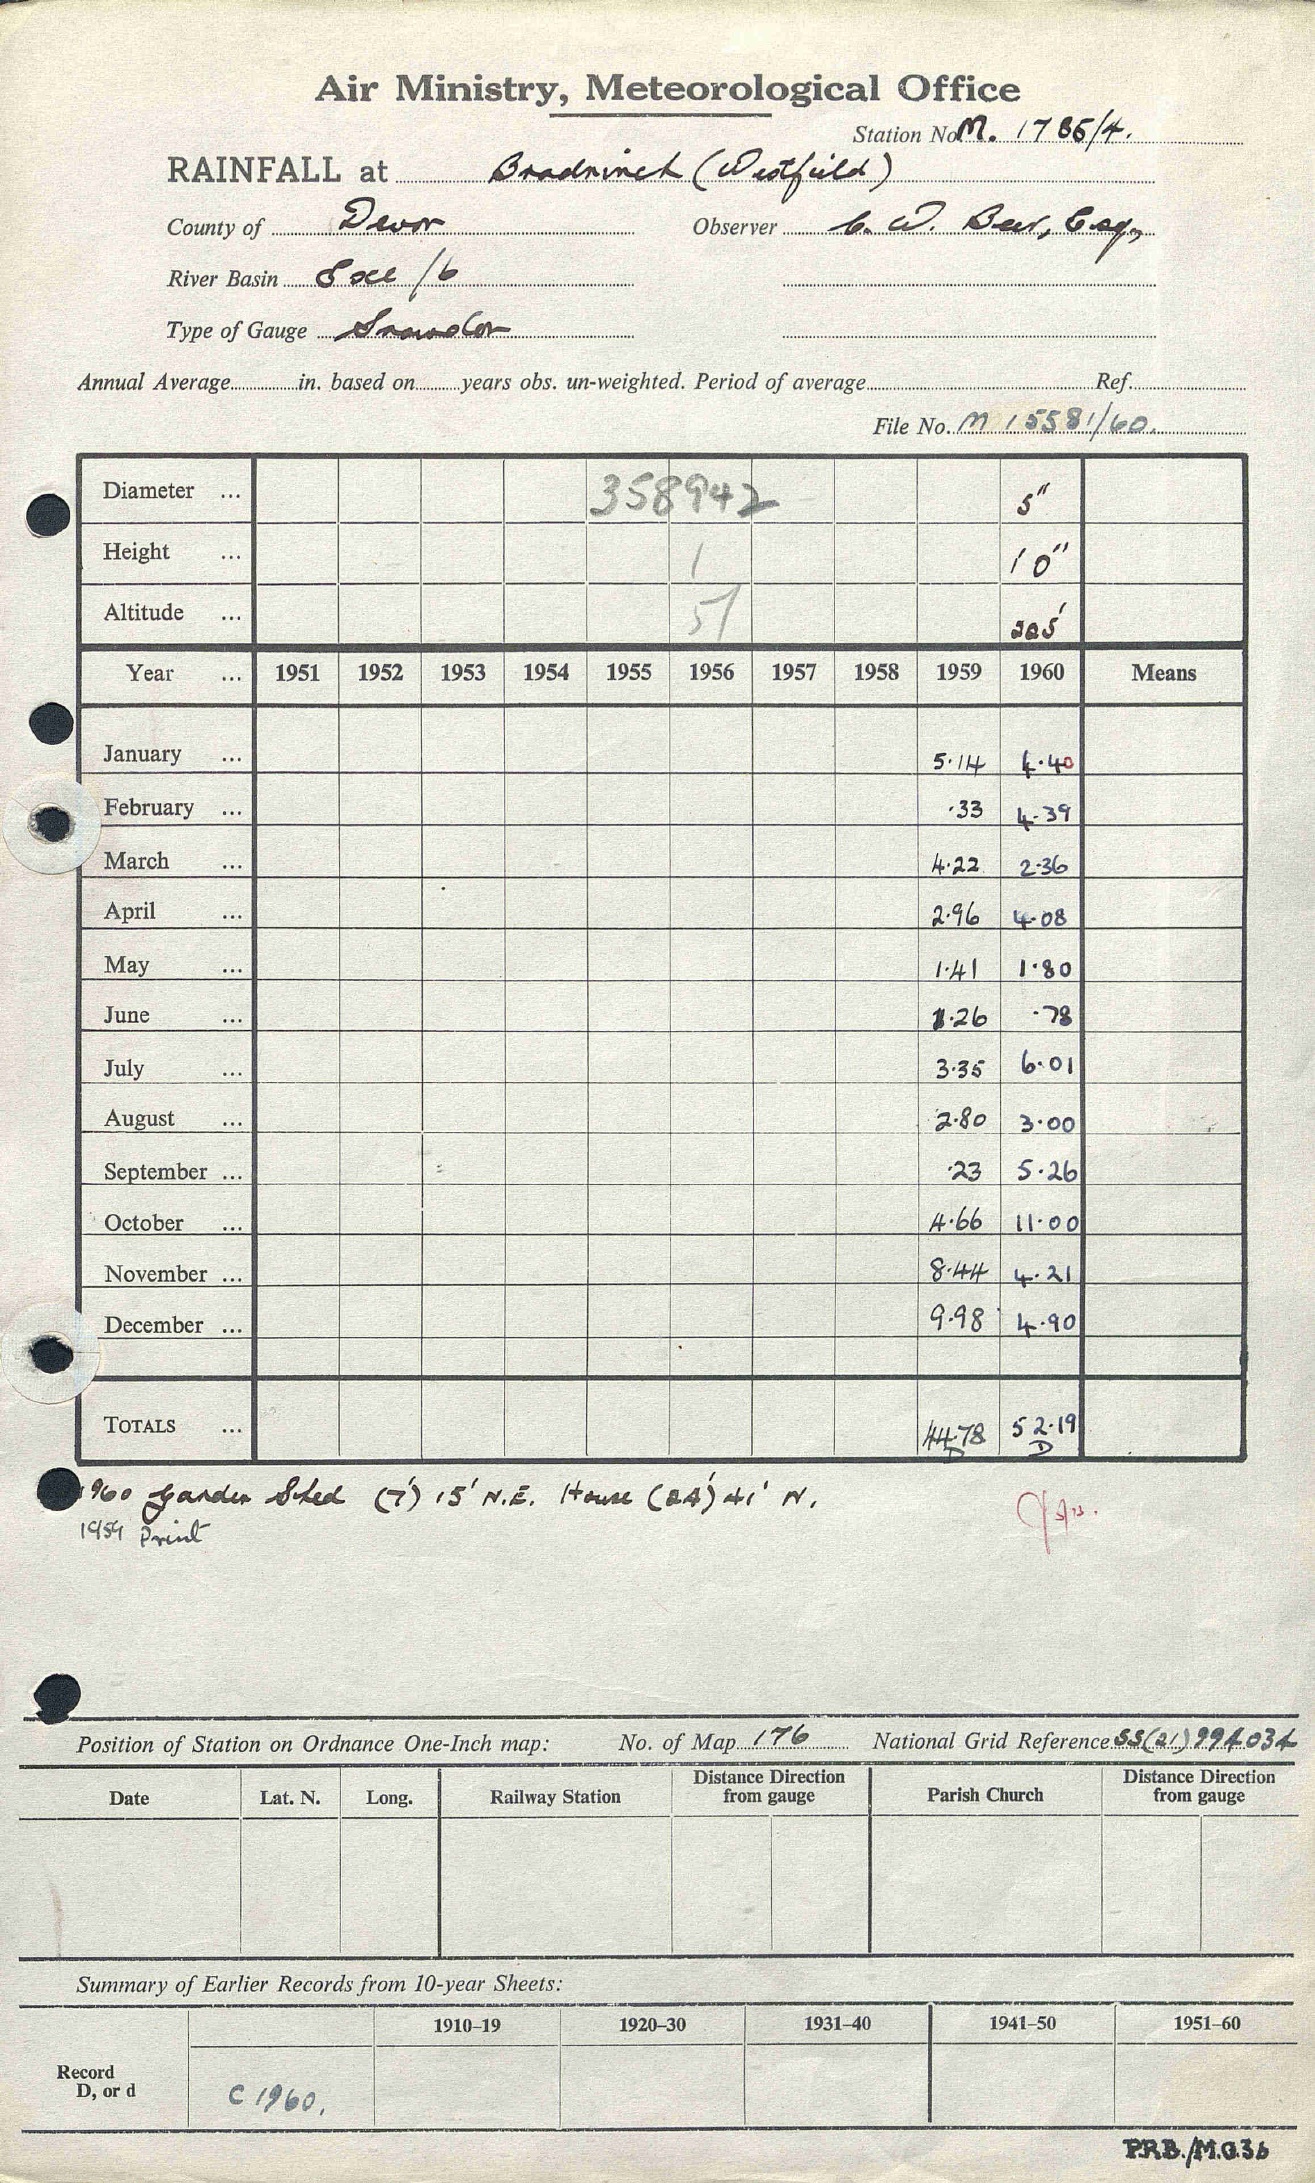 Air Ministry, Meteorological Office
Station No. M. 1786/4.
RAINFALL at Bradninch (Westfield)
County of Devon Observer C. W. Beer, Esq,
River Basin Exe /6
Type of Gauge Snowdon
Annual Average in. based on years obs. un-weighted. Period of average Ref.
File No. M 15581/60.
Diameter ... 358942 5"
Height ... 1 1' 0"
Altitude ... 51 225'
Year ... 1951 1952 1953 1954 1955 1956 1957 1958 1959 1960 Means
January ... 5.14 4.40
February ... .33 4.39
March ... 4.22 2.36
April ... 2.96 4.08
May ... 1.41 1.80
June ... 1.26 .78
July ... 3.35 6.01
August ... 2.80 3.00
September ... .23 5.26
October ... 4.66 11.00
November ... 8.44 4.21
December ... 9.98 4.90
TOTALS ... 44.78 52.19
D D
1960 Garden Shed (7') 15' N.E. House (24') 41' N.
1959 Print
Position of Station on Ordnance One-Inch map: No. of Map 176 National Grid Reference SS(21)994034
Date Lat. N. Long. Railway Station Distance Direction from gauge Parish Church Distance Direction from gauge
Summary of Earlier Records from 10-year Sheets:
1910–19 1920–30 1931–40 1941–50 1951–60
Record
D, or d
C 1960.
P.R.B./M.O.3b